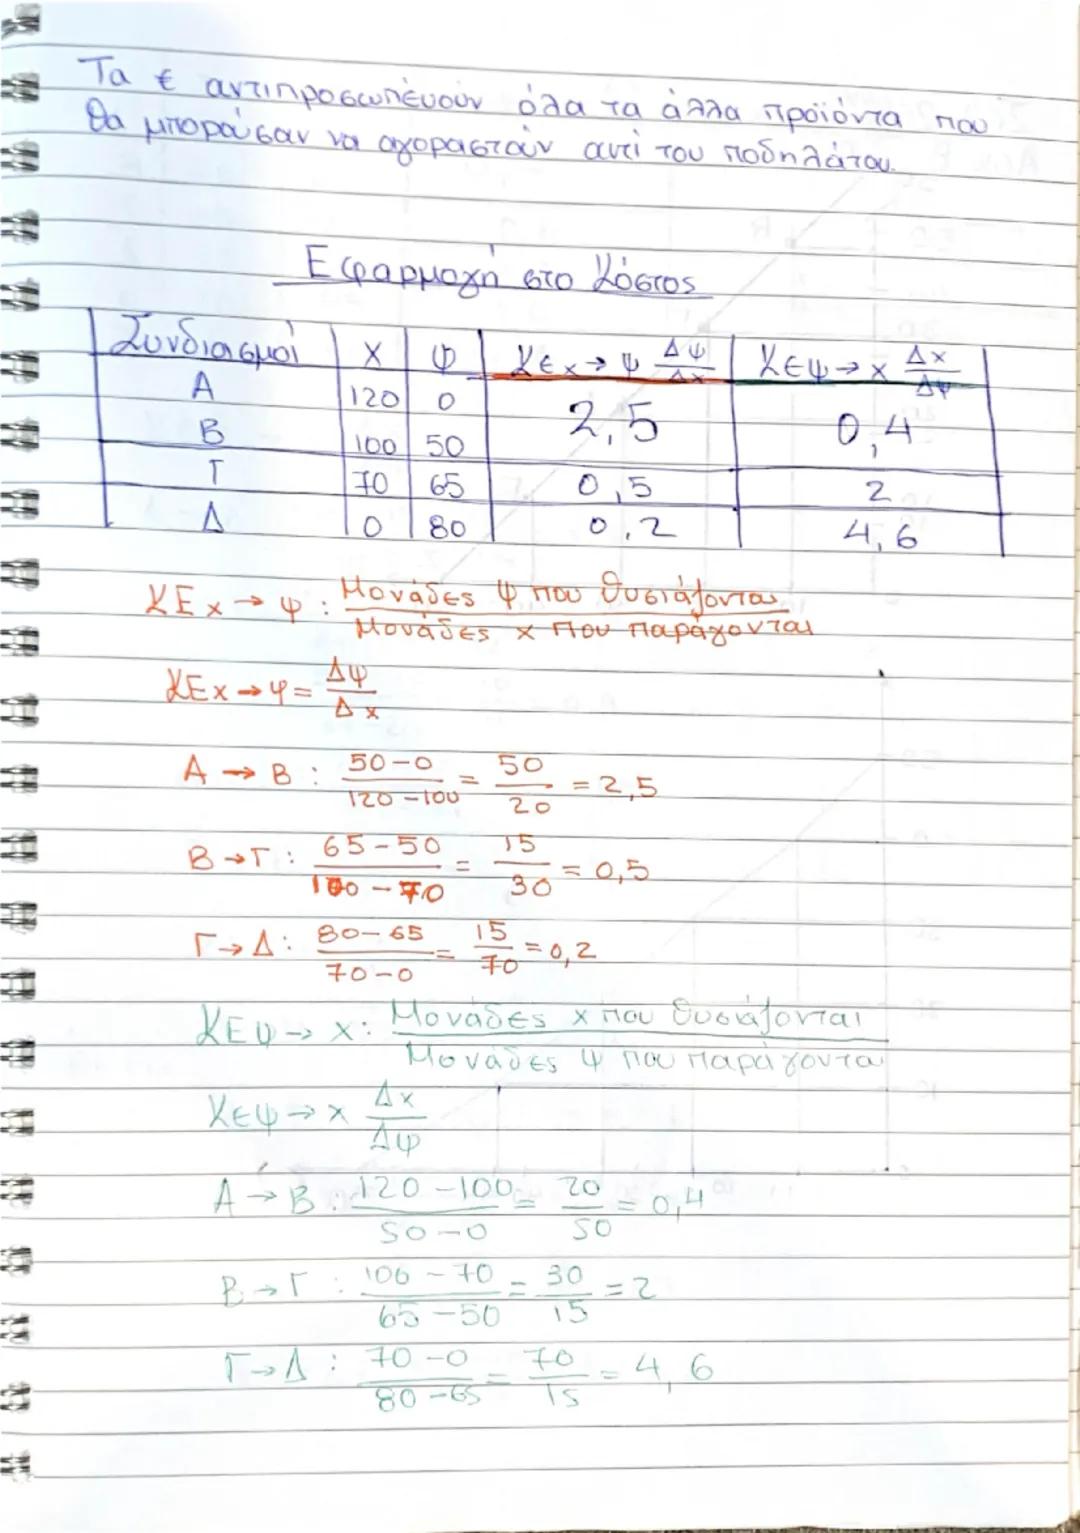 Τα € αντιπροσωπεύουν όλα τα άλλα προϊόντα που
θα μπορούσαν να αγοραστούν αντί του ποδηλάτου.
Εφαρμογή στο Κόστος
Συνδιασμοί X Ψ ΚΕx→ψ Δψ/Δx ΚΕψ→x Δx/Δψ
Α 120 0 2,5 0,4
Β 100 50
Γ 70 65 0,5 2
Δ 0 80 0,2 4,6
ΚΕx→ψ: Μονάδες ψ που θυσιάζονται
Μονάδες x που παράγονται
ΚΕx→ψ= Δψ/Δx
Α→Β: 50-0/120-100 = 50/20 = 2,5
Β→Γ: 65-50/100-70 = 15/30 = 0,5
Γ→Δ: 80-65/70-0 = 15/70 = 0,2
ΚΕψ→x: Μονάδες x που θυσιάζονται
Μονάδες ψ που παράγοντα
ΚΕψ→x Δx/Δψ
Α→Β: 120-100/50-0 = 20/50 = 0,4
Β→Γ: 100-70/65-50 = 30/15 = 2
Γ→Δ: 70-0/80-65 = 70/15 = 4,6